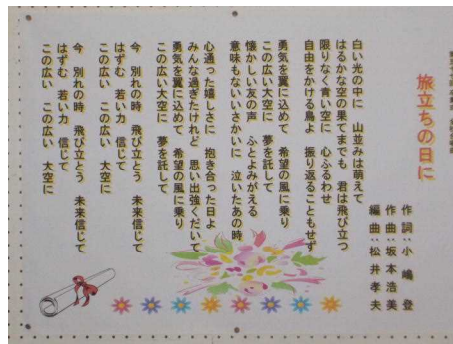 旅立ちの日に
作詞：小嶋登
作曲：坂本浩美
編曲：松井孝夫
白い光の中に　山並みは萌えて
はるかな空の果てまでも　君は飛び立つ
限りなく青い空に　心ふるわせ
自由をかける鳥よ　振り返ることもせず
勇気を翼に込めて　希望の風に乗り
この広い大空に　夢を託して
懐かしい友の声　ふとよみがえる
意味もないいさかいに　泣いたあの時
心通った嬉しさに　抱き合った日よ
みんな過ぎたけれど　思い出強くだいて
勇気を翼に込めて　希望の風に乗り
この広い大空に　夢を託して
今　別れの時　飛び立とう　未来信じて
はずむ　若い力　信じて
この広い　この広い　大空に
今　別れの時　飛び立とう　未来信じて
はずむ　若い力　信じて
この広い　この広い　大空に